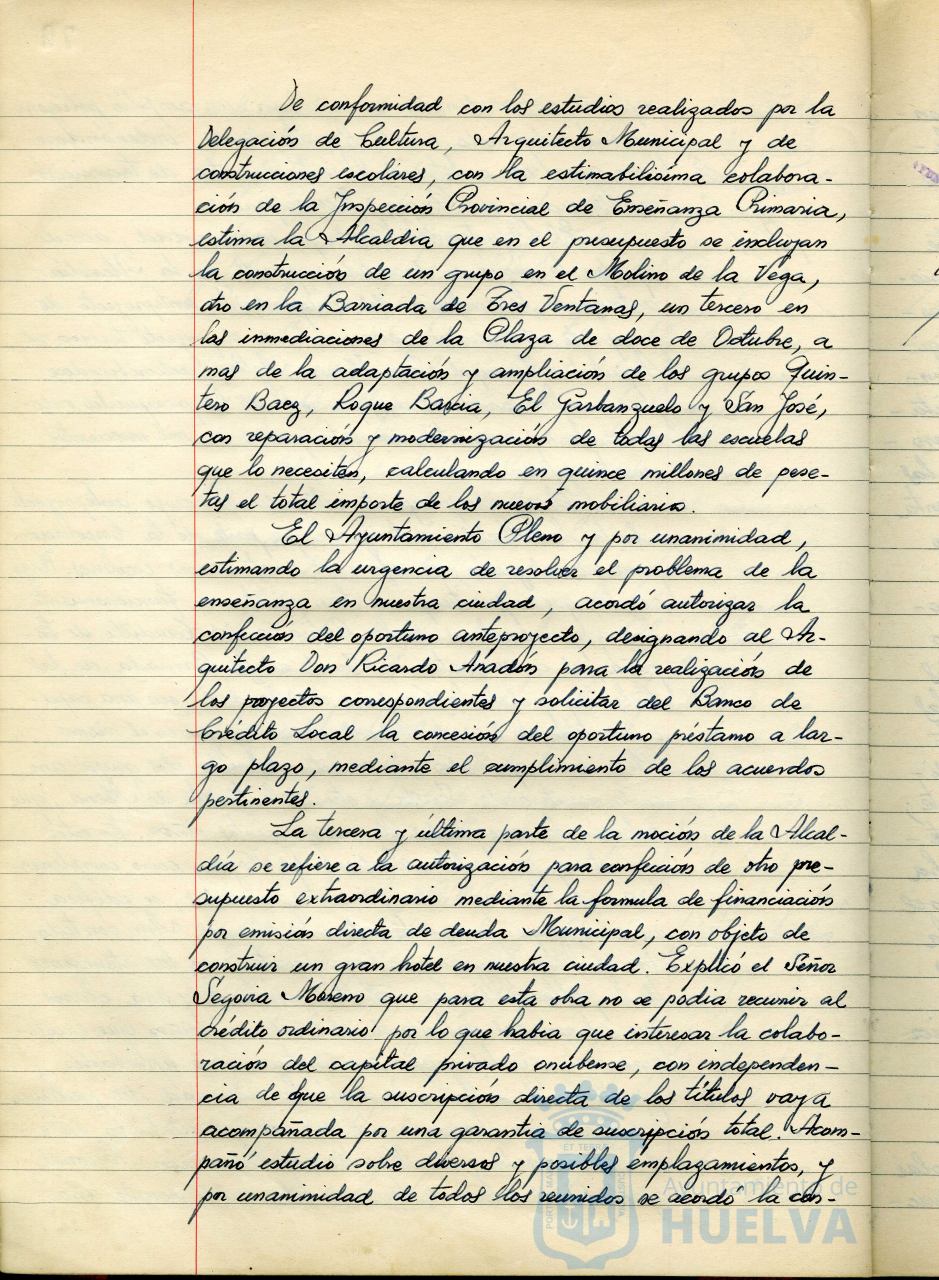 De conformidad con los estudios realizados por la
Delegación de Cultura, Arquitecto Municipal y de
construcciones escolares, con la estimabilísima colabora-
ción de la Inspección Provincial de Enseñanza Primaria,
estima la Alcaldia que en el presupuesto se incluyan
la construcción de un grupo en el Molino de la Vega,
otro en la Barriada de Tres Ventanas, un tercero en
las inmediaciones de la Plaza de doce de Octubre, a
mas de la adaptación y ampliación de los grupos Quin-
tero Baez, Roque Barcia, El Garbanzuelo y San José,
con reparación y modernización de todas las escuelas
que lo necesiten, calculando en quince millones de pese-
tas el total importe de los nuevos mobiliarios.
El Ayuntamiento Pleno y por unanimidad,
estimando la urgencia de resolver el problema de la
enseñanza en nuestra ciudad, acordó autorizar la
confección del oportuno anteproyecto, designando al Ar-
quitecto Don Ricardo Anadón para la realización de
los proyectos correspondientes y solicitar del Banco de
Crédito Local la concesión del oportuno préstamo a lar-
go plazo, mediante el cumplimiento de los acuerdos
pertinentes.
La tercera y última parte de la moción de la Alcal-
día se refiere a la autorización para confección de otro pre-
supuesto extraordinario mediante la formula de financiación
por emisión directa de deuda Municipal, con objeto de
construir un gran hotel en nuestra ciudad. Explicó el Señor
Segovia Moreno que para esta obra no se podia recurrir al
crédito ordinario por lo que habia que interesar la colabo-
ración del capital privado onubense, con independen-
cia de que la suscripción directa de los títulos vaya
acompañada por una garantia de suscripción total. Acom-
pañó estudio sobre diversos y posibles emplazamientos, y
por unanimidad de todos los reunidos se acordó la con-
Ayuntamiento de
HUELVA